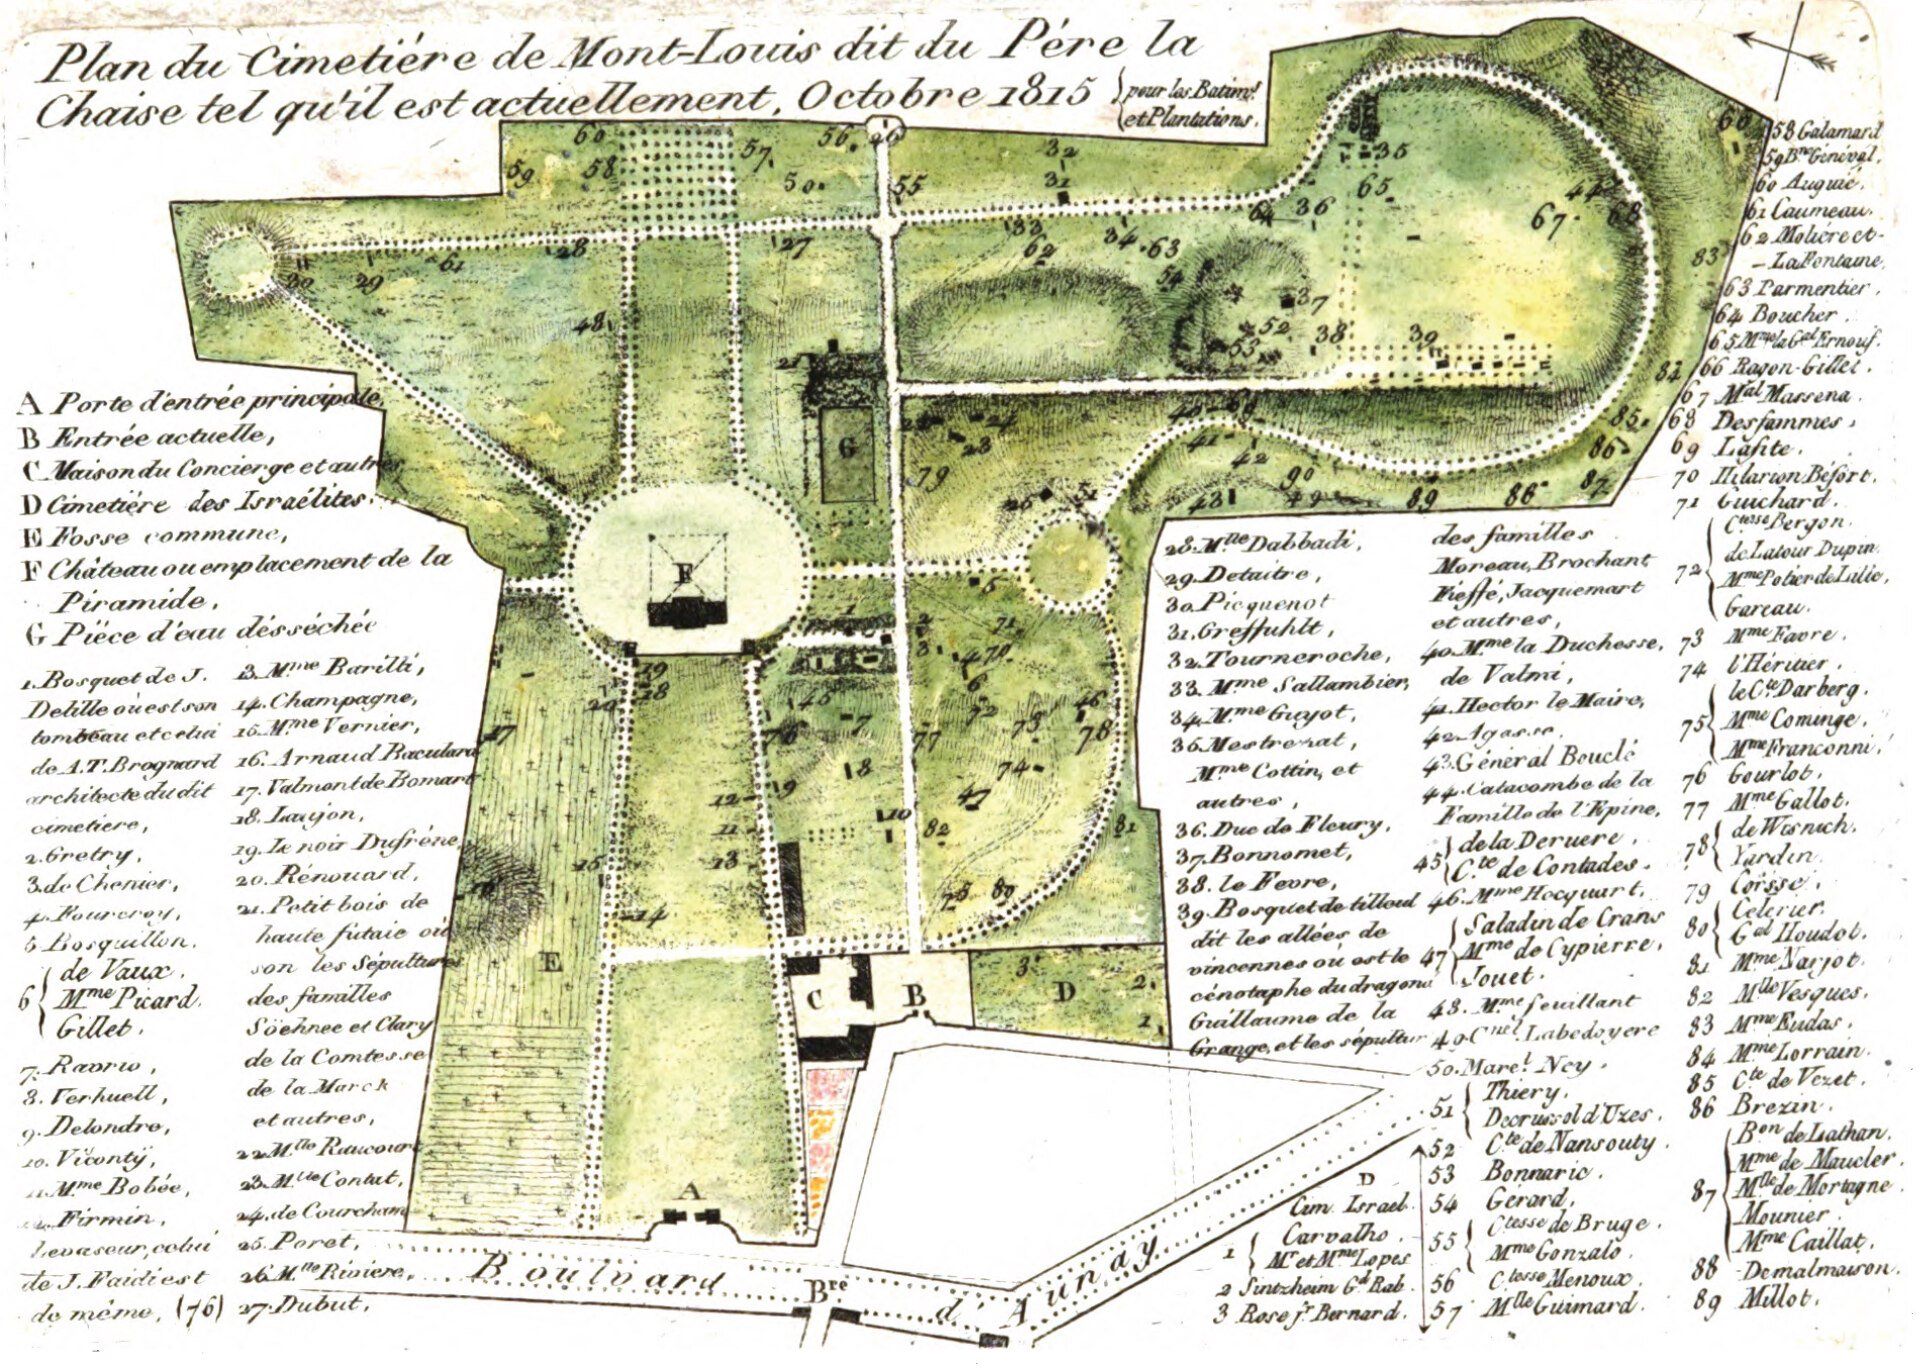 Plan du Cimetiére de Mont-Louis dit du Pére la
Chaise tel qu'il est actuellement, Octobre 1815
pour les Batimt.
et Plantations.
A Porte d'entrée principale,
B Entrée actuelle,
C Maison du Concierge et autres
D Cimetiére des Israélites.
E Fosse commune,
F Château ou emplacement de la
Piramide,
G Piéce d'eau désséchée
1. Bosquet de J.
Delille où est son
tombeau et celui
de A.T. Brognard
architecte du dit
cimetiere,
2. Gretry,
3. de Chenier,
4. Fourcroy,
5 Bosquillon.
6 { de Vaux.
Mme Picard.
Gillet.
7. Ravrio,
8. Verhuell,
9. Delondre,
10. Viconty,
11. Mme Bobée,
Firmin,
Levaseur, celui
de J. Faidi est
de même, (76)
13. Mme Barilli,
14. Champagne,
15. Mme Vernier,
16. Arnaud Baculard
17. Valmont de Bomart
18. Laujon,
19. Le noir Dufréne,
20. Rénouard,
21. Petit bois de
haute futaie où
son les Sépultures
des familles
Söehnee et Clary
de la Comtesse
de la Marck
et autres,
22. Mlle Raucourt
23. Mlle Contat,
24. de Courcham
25. Poret,
26. Mlle Riviere,
27. Dubut,
28. Mlle Dabbadi,
29. Detaitre,
30. Picquenot
31. Greffuhlt,
32. Tourneroche,
33. Mme Sallambier,
34. Mme Guyot,
35. Mestrezat,
Mme Cottin, et
autres,
36. Duc de Fleury,
37. Bonnomet,
38. le Fevre,
39. Bosquet de tilleul
dit les allées de
vincennes où est le
cénotaphe du dragons
Guillaume de la
Grange, et les sépultur
des familles
Moreau, Brochant
Fieffé, Jacquemart
et autres,
40. Mme la Duchesse,
de Valmi,
41. Hector le Maire,
42. Agasse.
43. Général Bouclé
44. Catacombe de la
Famille de l'Epine,
45 { de la Deruere,
Cte de Contades.
46. Mme Hocquart,
47 { Saladin de Crans
Mme de Cypierre,
Jouet.
48. Mme feuillant
49. Cnel Labedoyere
50. Marel Ney.
51 { Thiery,
Decrussol d'Uzes.
52 Cte de Nansouty.
53 Bonnaric.
54 Gerard,
55 { Ctesse de Bruge.
Mme Gonzalo.
56 Ctesse Menoux.
57 Mlle Guimard.
58 Galamard
59 Bne Généval,
60 Auguié.
61 Caumeau.
62 Moliére et
La Fontaine,
63 Parmentier,
64 Boucher.
65 Mme la Gal Ernouf.
66 Ragon-Gillet,
67 Mal Massena.
68 Desfammes,
69 Lafite.
70 Hilarion Béfort.
71 Guichard.
72 { Ctesse Bergon.
de Latour Dupin.
Mme Potier de Lille,
Gareau.
73 Mme Favre.
74 l'Héritier.
75 { le Cte Darberg.
Mme Cominge,
Mme Franconni.
76 Gourlot,
77 Mme Gallot.
78 { de Wisnich.
Yardin.
79 Corsse,
80 { Celerier.
Gal Houdot.
81 Mme Narjot.
82 Mlle Vesques,
83 Mme Eudas,
84 Mme Lorrain.
85 Cte de Vezet.
86 Brezin.
87 { Bon de Lathan.
Mme de Maucler.
Mlle de Mortagne
Mounier.
Mme Caillat,
88 Demalmaison.
89 Millot.
D
Cim. Israel.
1 { Carvalho.
Mr et Mme Lopes
2 Sintzheim Gd Rab.
3 Rose fr Bernard.
A
B
C
D
E
F
G
Boulvard
Bre
d'Aunay